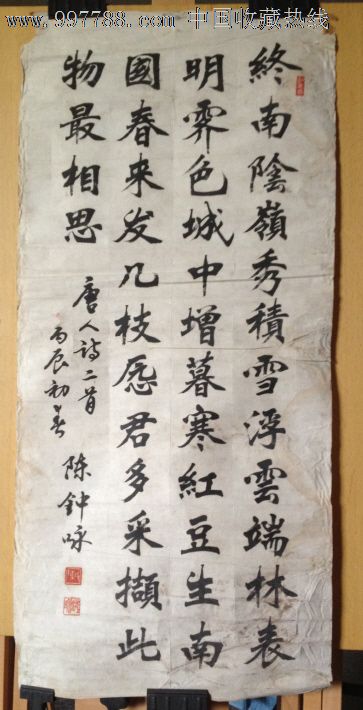 www.997788.com 中国收藏热线
終南陰嶺秀積雪浮雲端林表
明霽色城中增暮寒紅豆生南
國春来发几枝愿君多采擷此
物最相思
唐人诗二首
丙辰初春 陈钟咏